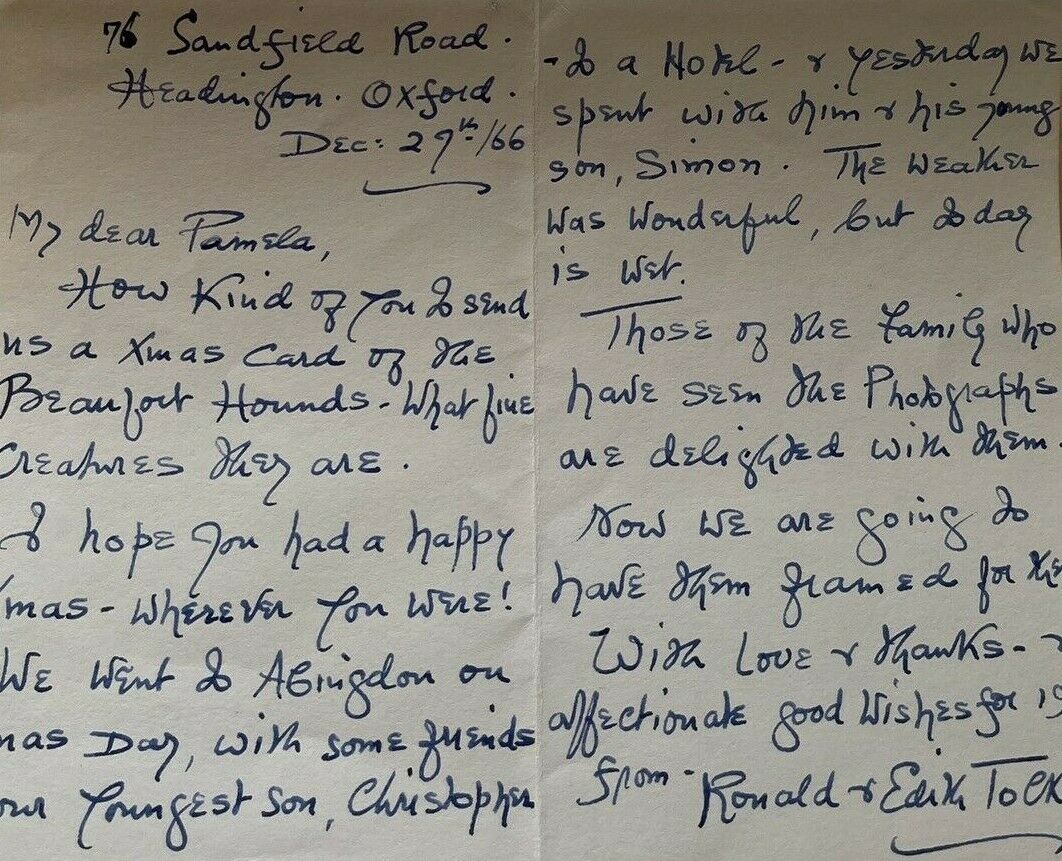 76 Sandfield Road.
Headington. Oxford.
Dec: 29th/66
My dear Pamela,
How Kind of you to send
us a Xmas Card of the
Beaufort Hounds - What fine
Creatures they are.
I hope you had a happy
mas - wherever you were!
We went to Abingdon on
mas Day, with some friends
our Youngest son, Christopher
- to a Hotel - & yesterday we
spent with him & his young
son, Simon. The weather
was wonderful, but today
is wet.
Those of the Family who
have seen the Photographs
are delighted with them.
Now we are going to
have them framed for the
With Love & thanks -
affectionate good wishes for 19
from - Ronald & Edith Tolk